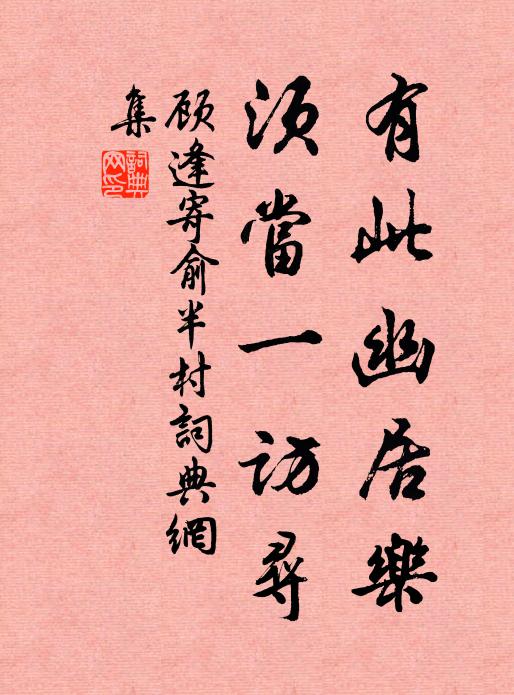 有此幽居樂
須當一訪尋
顾逢寄俞半村詞典網
集
詞典网印